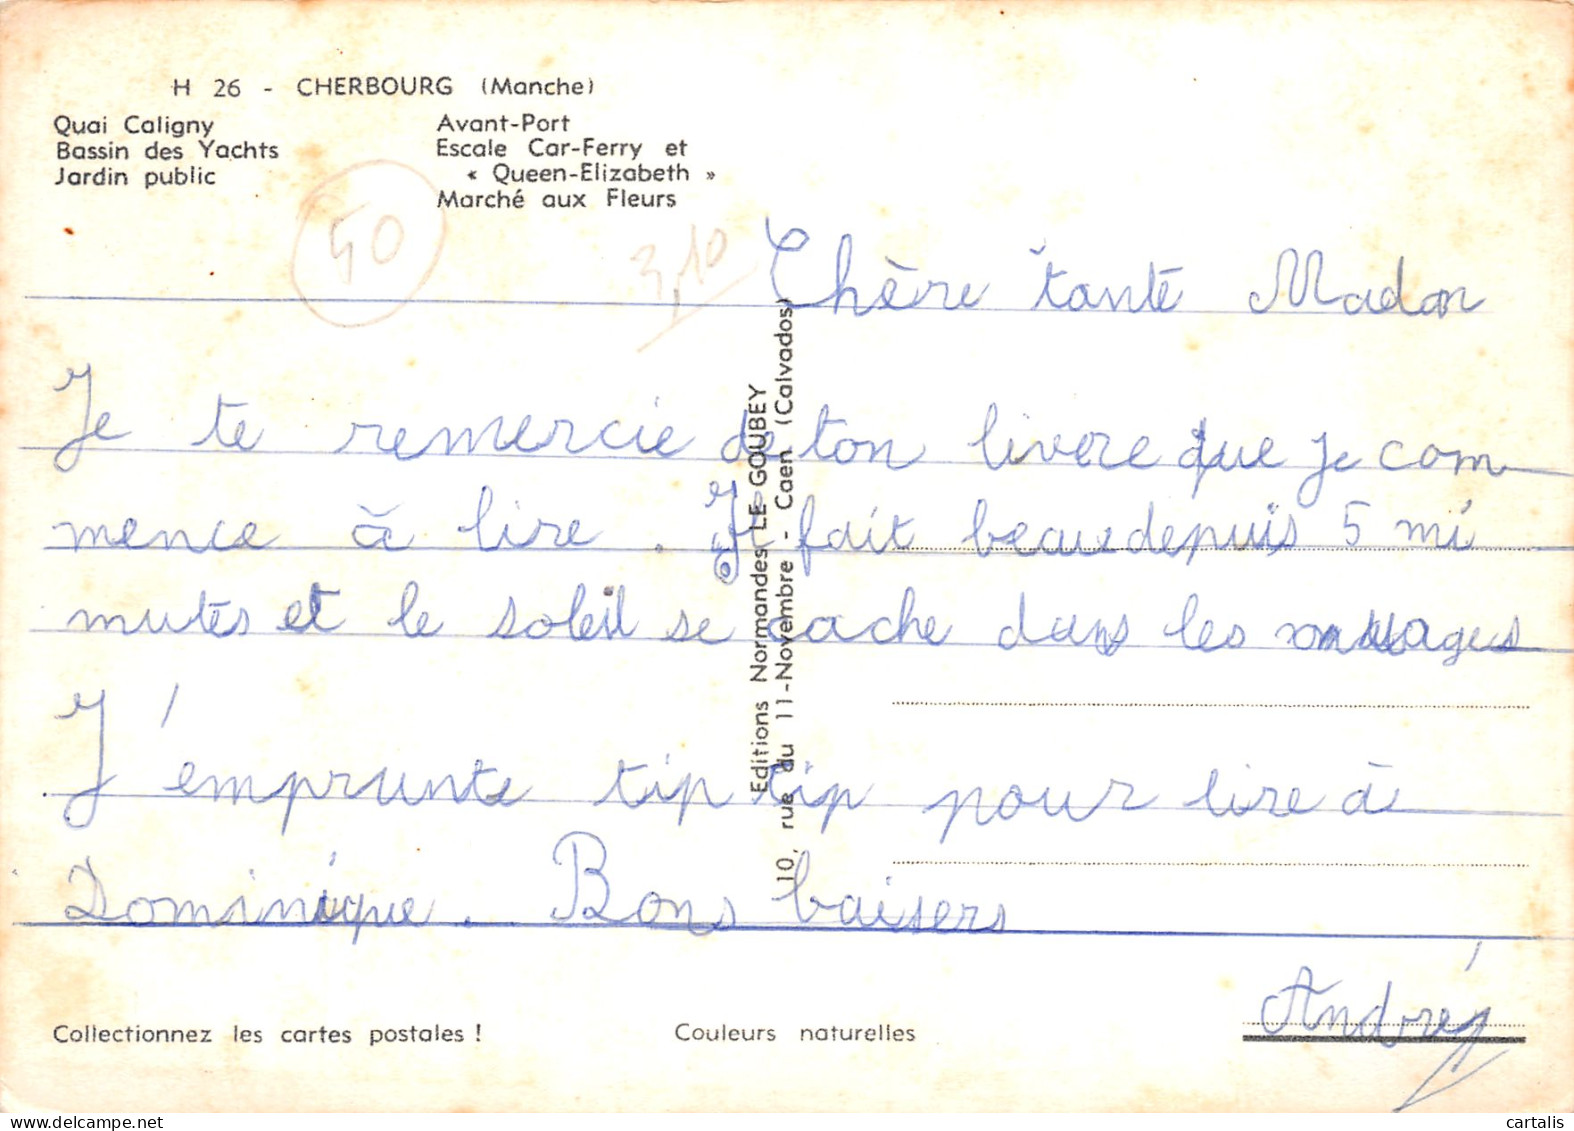 H 26 - CHERBOURG (Manche)
Quai Caligny
Bassin des Yachts
Jardin public
Avant-Port
Escale Car-Ferry et
« Queen-Elizabeth »
Marché aux Fleurs
50
3,10
Chère tante Madon
Je te remercie de ton livere que je com
mence à lire. Il fait beau depuis 5 mi
nutes et le soleil se cache dans les nuages
J'emprunte tip tip pour lire à
Dominique. Bons baisers
André
Editions Normandes LE GOUBEY
10, rue du 11-Novembre - Caen (Calvados)
Collectionnez les cartes postales !
Couleurs naturelles
cartalis
www.delcampe.net